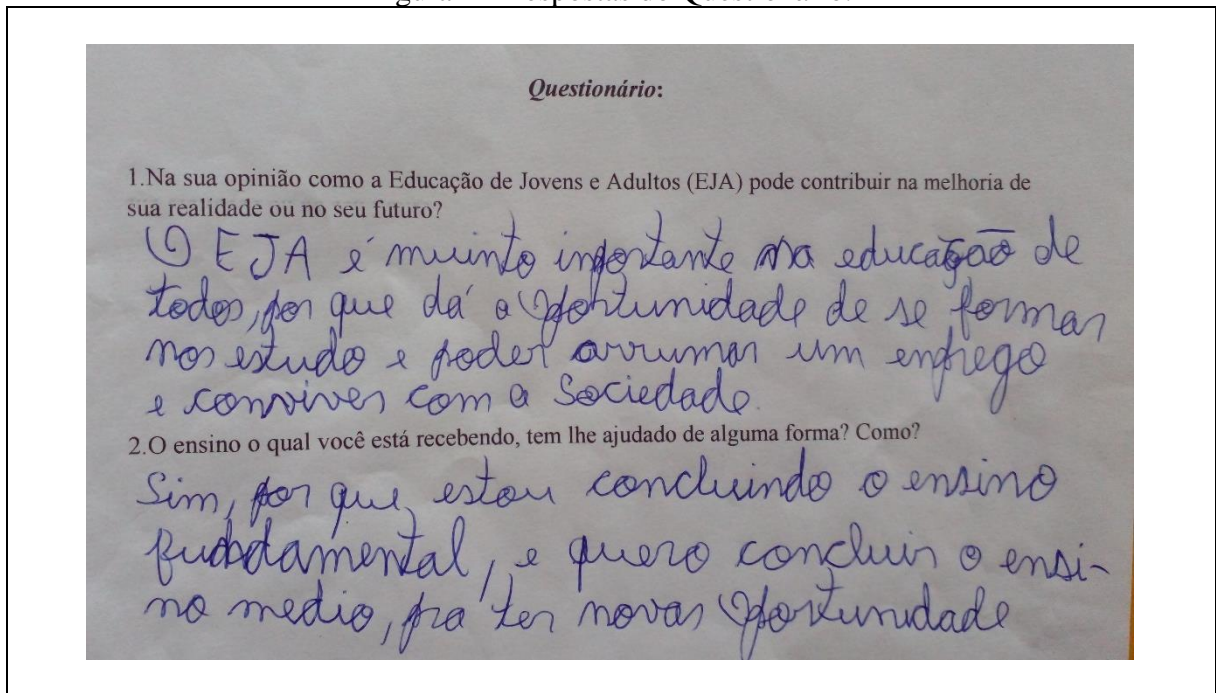 Questionário:
1.Na sua opinião como a Educação de Jovens e Adultos (EJA) pode contribuir na melhoria de
sua realidade ou no seu futuro?
O EJA é muinto importante na educação de
todos, por que dá a oportunidade de se formar
nos estudo e poder arrumar um emprego
e conviver com a Sociedade.
2.O ensino o qual você está recebendo, tem lhe ajudado de alguma forma? Como?
Sim, por que estou concluindo o ensino
fundamental, e quero concluir o ensi-
no medio, pra ter novas oportunidade